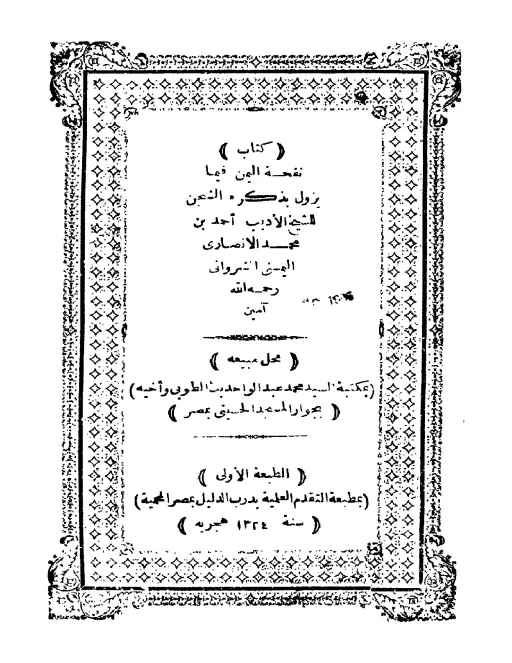 ﴿ كتاب ﴾
نفحة اليمن فيما
يزول بذكره الشجن
للشيخ الأديب أحمد بن
محمد الانصارى
اليمنى الشروانى
رحمه الله
آمين
﴿ محل مبيعه ﴾
(بمكتبة السيد محمد عبد الواحد بك الطوبى وأخيه)
﴿ بجوار المسجد الحسينى بمصر ﴾
﴿ الطبعة الأولى ﴾
(بمطبعة التقدم العلمية بدرب الدليل بمصر المحمية)
﴿ سنة ١٣٢٤ هجريه ﴾